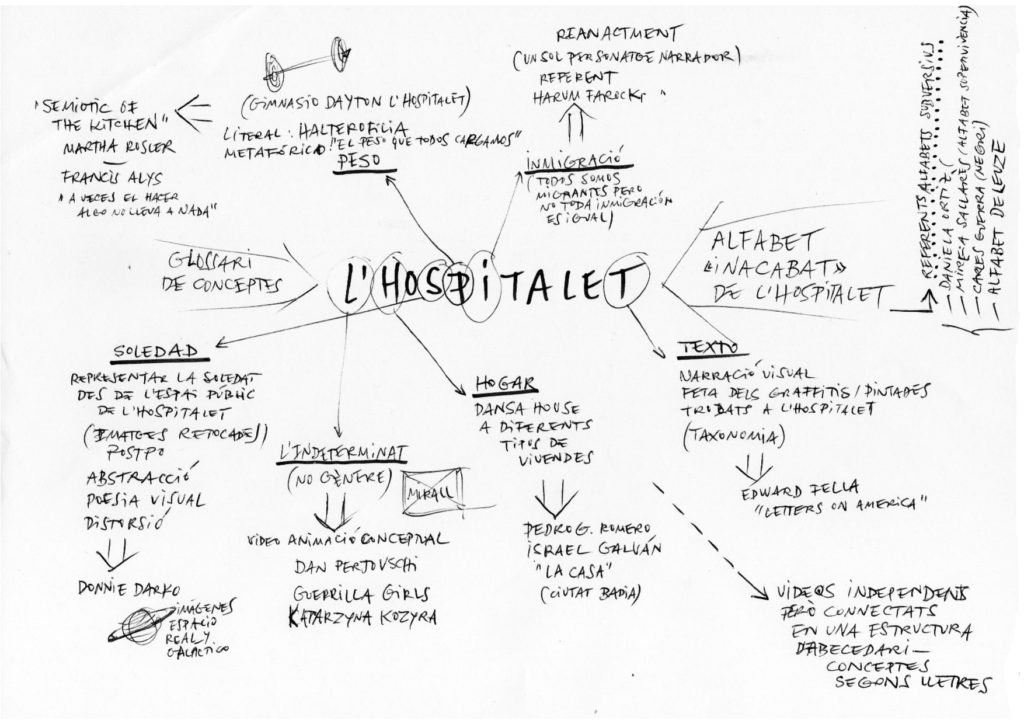 REANACTMENT
(UN SOL PERSONATGE NARRADOR)
REFERENT
HARUM FAROCKI "
INMIGRACIÓ
(TODOS SOMOS
MIGRANTES PERO
NO TODA INMIGRACIÓN
ES IGUAL)
(GIMNASIO DAYTON L'HOSPITALET)
LITERAL: HALTEROFILIA
METAFÓRICO: "EL PESO QUE TODOS CARGAMOS"
PESO
"SEMIOTIC OF
THE KITCHEN"
MARTHA ROSLER
FRANCIS ALYS
"A VECES EL HACER
ALGO NO LLEVA A NADA"
GLOSSARI
DE CONCEPTES
L'HOSPITALET
ALFABET
«INACABAT»
DE L'HOSPITALET
REFERENTS ALFABETS SUBVERSIUS
— DANIELA ORTIZ (
— MIREIA SALLARES (ALFABET SUPERVIVENCIA)
— CARLES GUERRA (NEGRI)
— ALFABET DELEUZE
SOLEDAD
REPRESENTAR LA SOLEDAT
DES DE L'ESPAI PÚBLIC
DE L'HOSPITALET
(IMATGES RETOCADES)
POSTPO
ABSTRACCIÓ
POESIA VISUAL
DISTORSIÓ
DONNIE DARKO
IMÁGENES
ESPACIO
REAL Y
GALÁCTICO
L'INDETERMINAT
(NO GÈNERE)
MIRALL
VIDEO ANIMACIÓ CONCEPTUAL
DAN PERJOVSCHI
GUERRILLA GIRLS
KATARZYNA KOZYRA
HOGAR
DANSA HOUSE
A DIFERENTS
TIPOS DE
VIVENDES
PEDRO G. ROMERO
ISRAEL GALVÁN
"LA CASA"
(CIUTAT BADIA)
TEXTO
NARRACIÓ VISUAL
FETA DELS GRAFFITIS/PINTADES
TROBATS A L'HOSPITALET
(TAXONOMIA)
EDWARD FELLA
"LETTERS ON AMERICA"
VIDEOS INDEPENDENTS
PERÒ CONNECTATS
EN UNA ESTRUCTURA
D'ABECEDARI —
CONCEPTES
SEGONS LLETRES